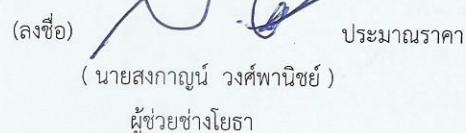 (ลงชื่อ) ประมาณราคา
( นายสงกาญน์ วงศ์พานิชย์ )
ผู้ช่วยช่างโยธา